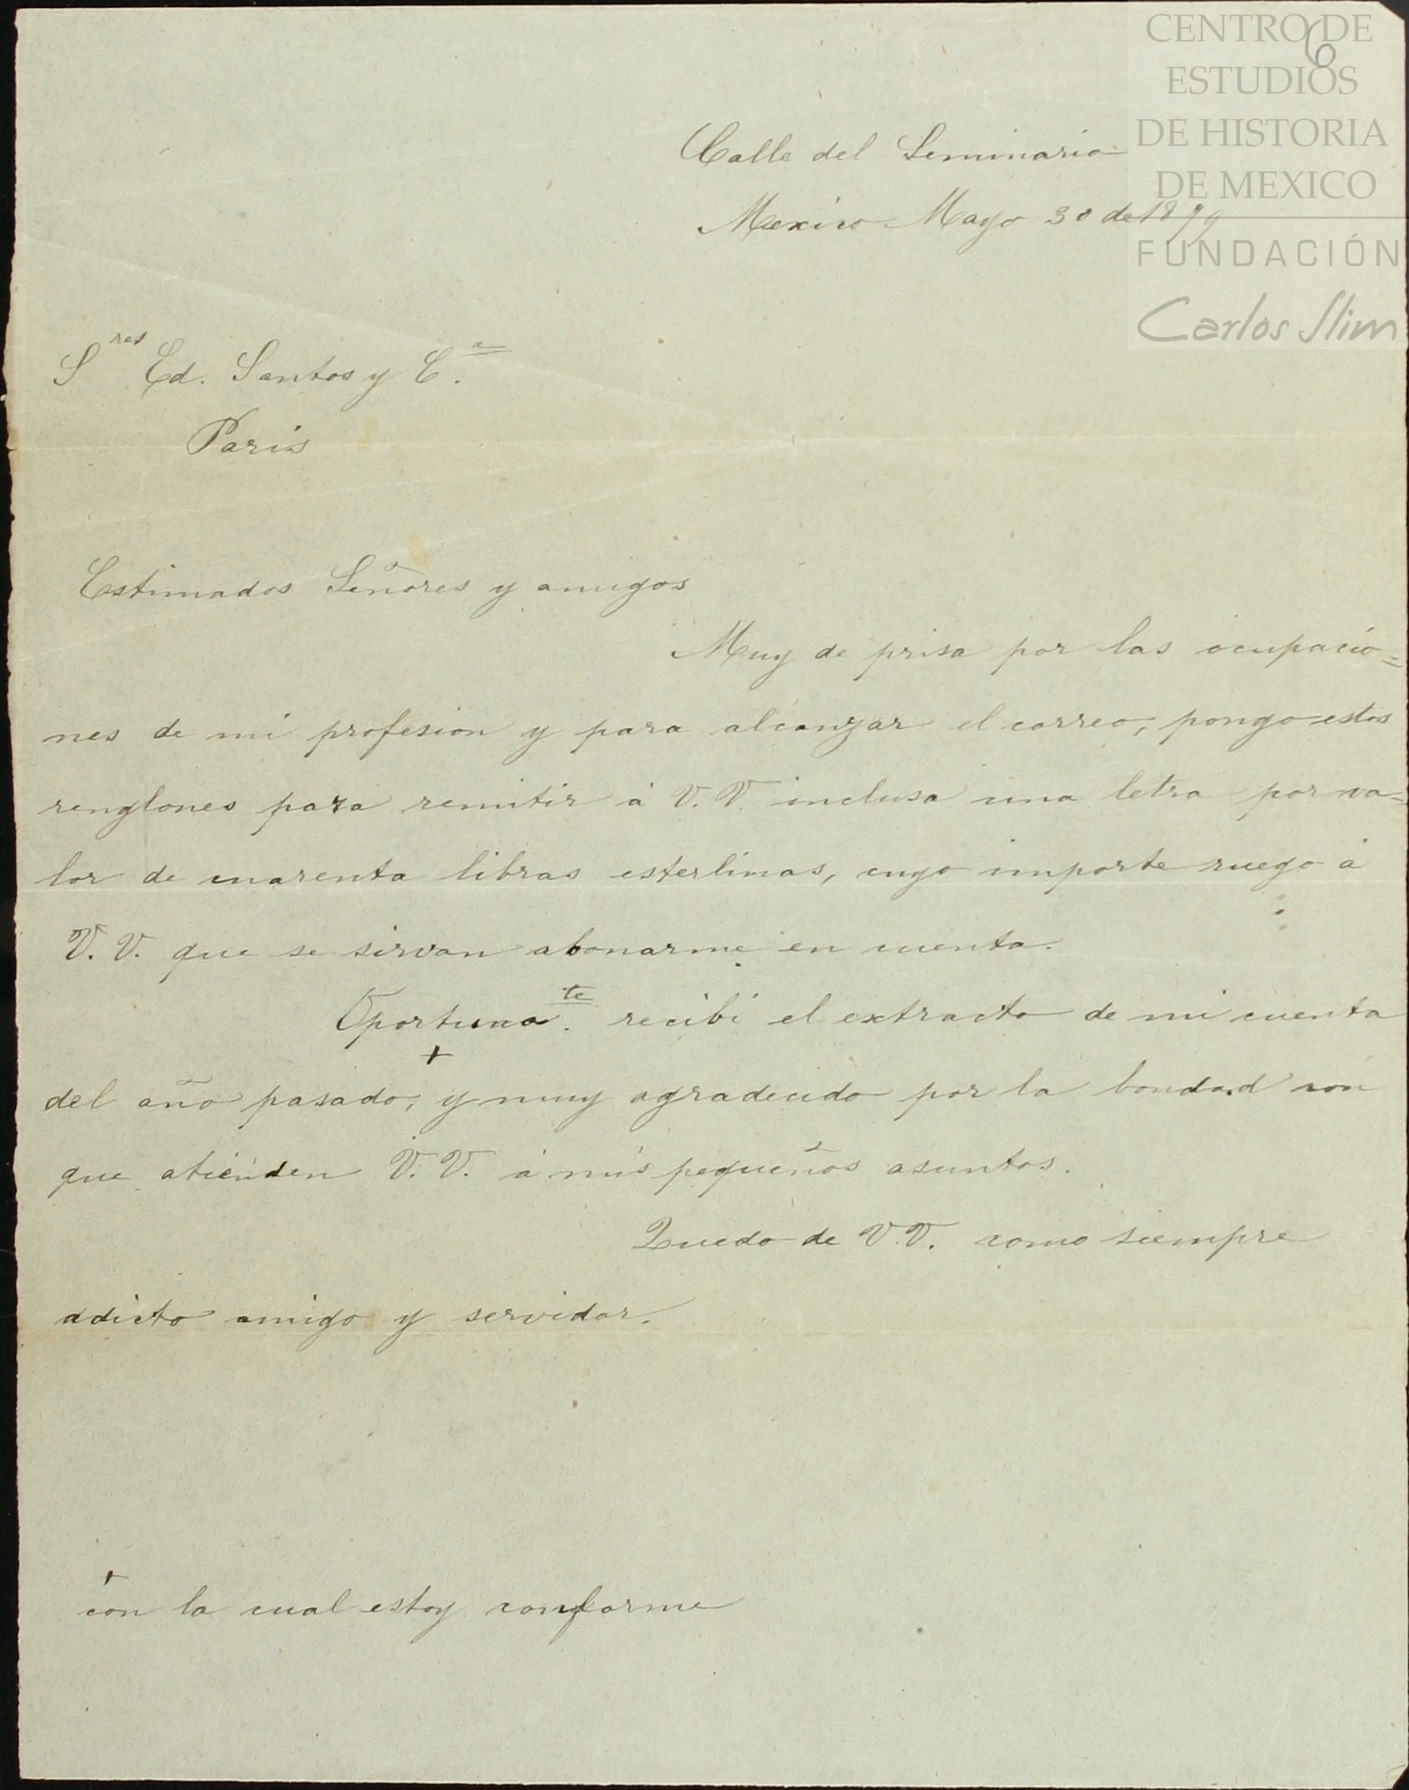 CENTRO DE
ESTUDIOS
DE HISTORIA
DE MEXICO
FUNDACIÓN
Carlos Slim
6
Calle del Seminario
Mexico Mayo 30 de 1879
S.res Ed. Santos y C.a
Paris
Estimados Señores y amigos
Muy de prisa por las ocupacio=
nes de mi profesion y para alcanzar el correo, pongo estos
renglones para remitir á V.V. inclusa una letra por va=
lor de cuarenta libras esterlinas, cuyo importe ruego á
V.V. que se sirvan abonarme en cuenta.
Oportuna.te recibí el extracto de mi cuenta
del año pasado, + y muy agradecido por la bondad con
que atienden V.V. á mis pequeños asuntos.
Quedo de V.V. como siempre
addicto amigo y servidor.
+
con la cual estoy conforme